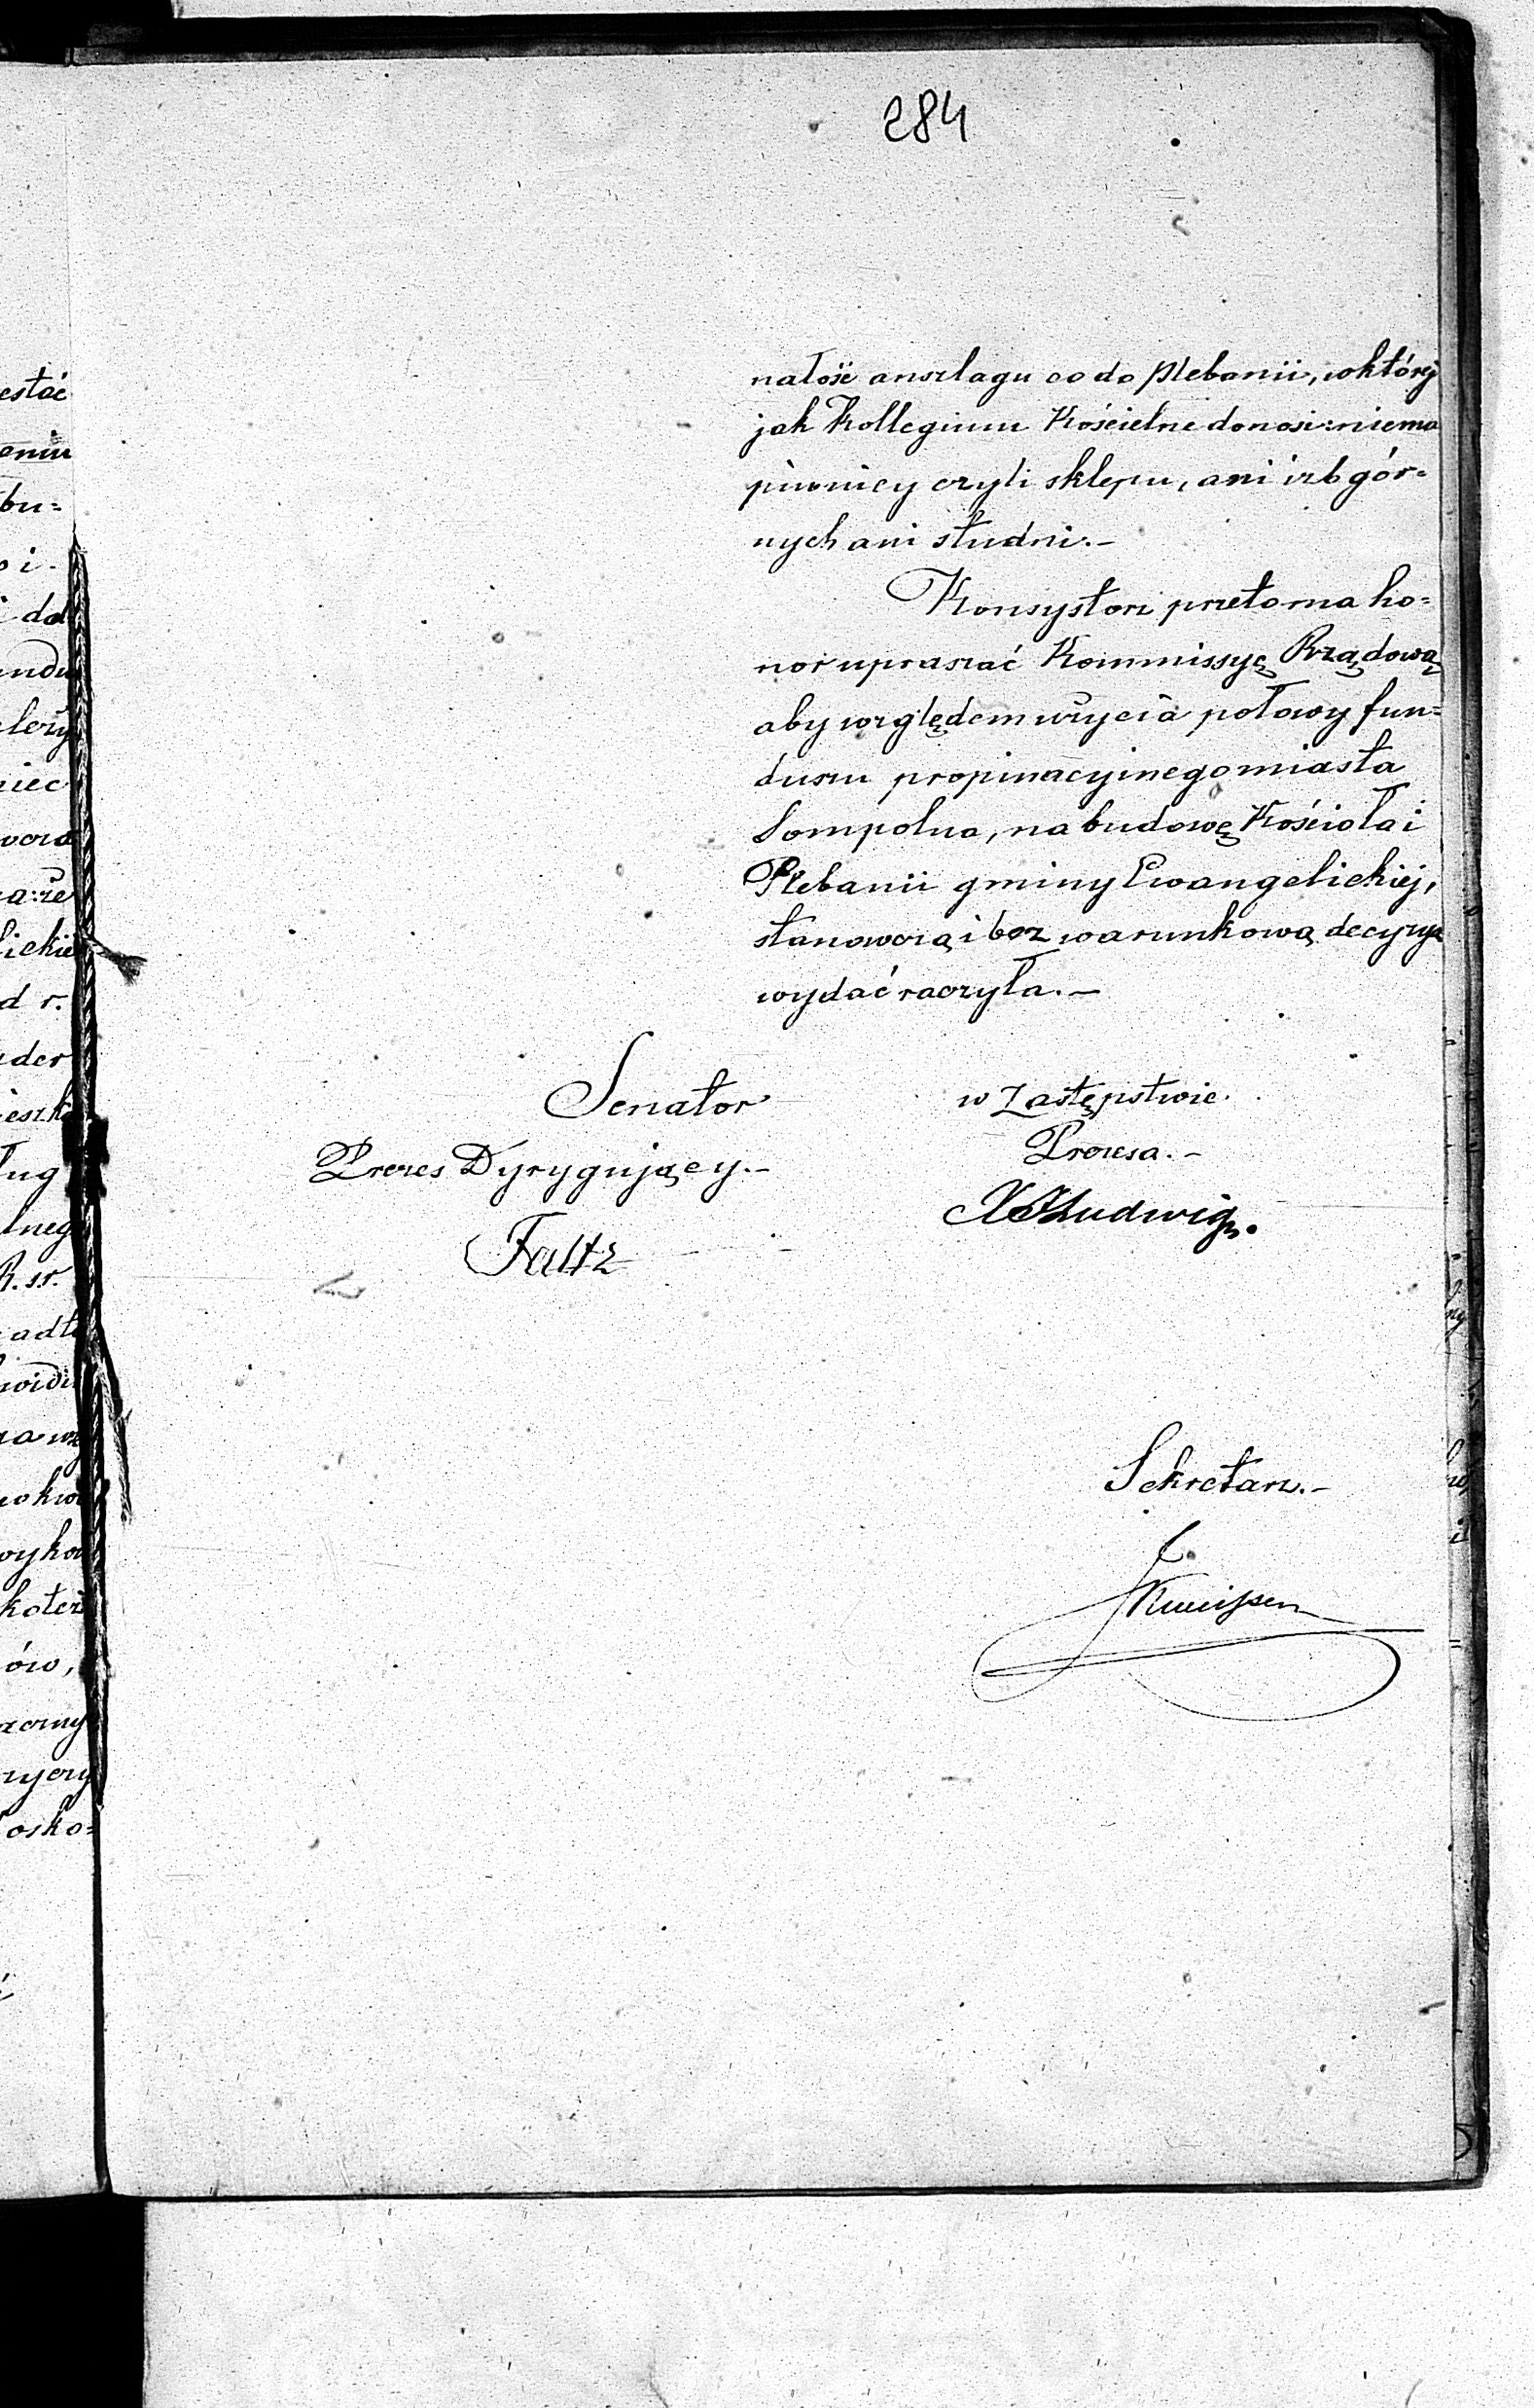 284
nałość anszlagu co do Plebanii, w której
jak Kollegium Kościelne donosi: niema
piwnicy czyli sklepu, ani izb gór=
nych ani studni.-
Konsystorz przeto ma ho=
nor upraszać Kommissyę Rządową
aby względem użycia połowy fun=
duszu propinacyinego miasta
Sompolna, na budowę Kościoła i
Plebanii gminy Ewangelickiej,
stanowczą i bez warunkową decyzyę
wydać raczyła.-
Senator
Prezes Dyrygujący.-
w Zastępstwie
Prezesa.-
Ludwig.
Sekretarz.-